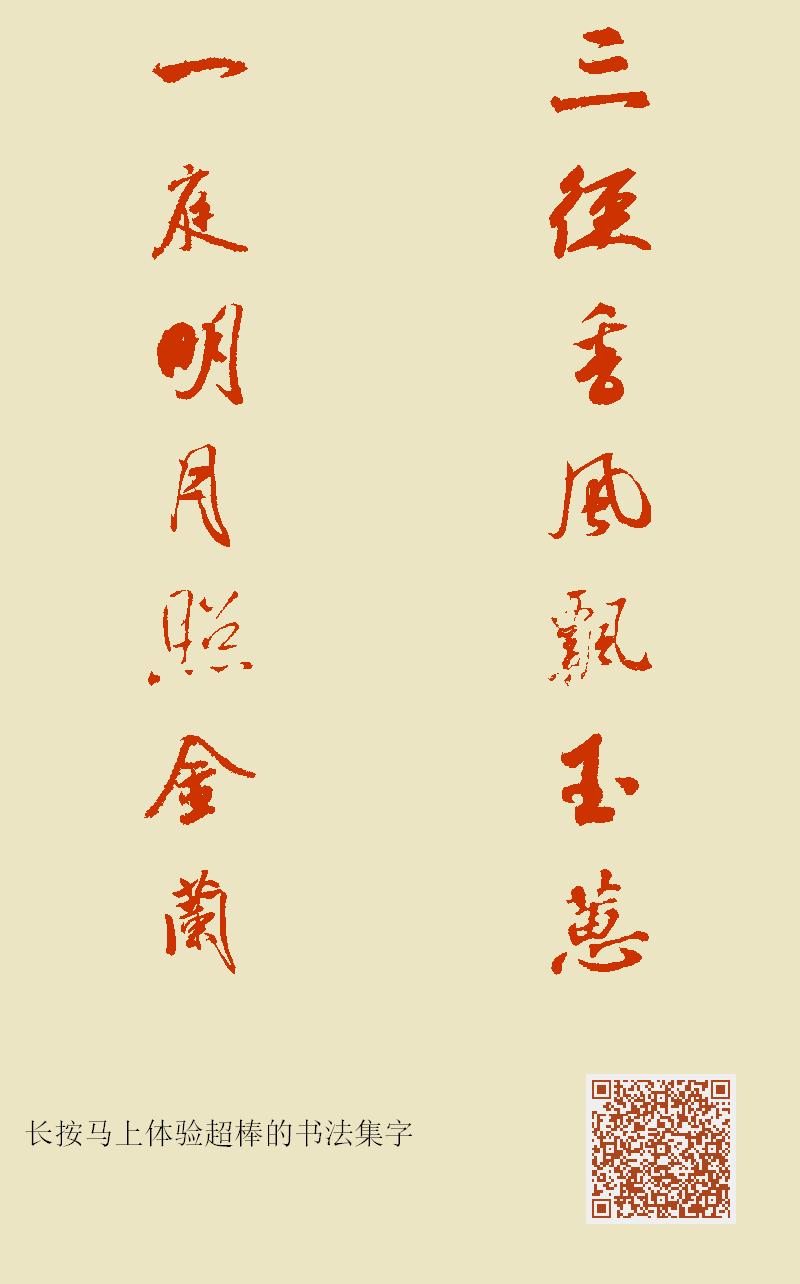 三徑香風飄玉蕙
一庭明月照金蘭
长按马上体验超棒的书法集字